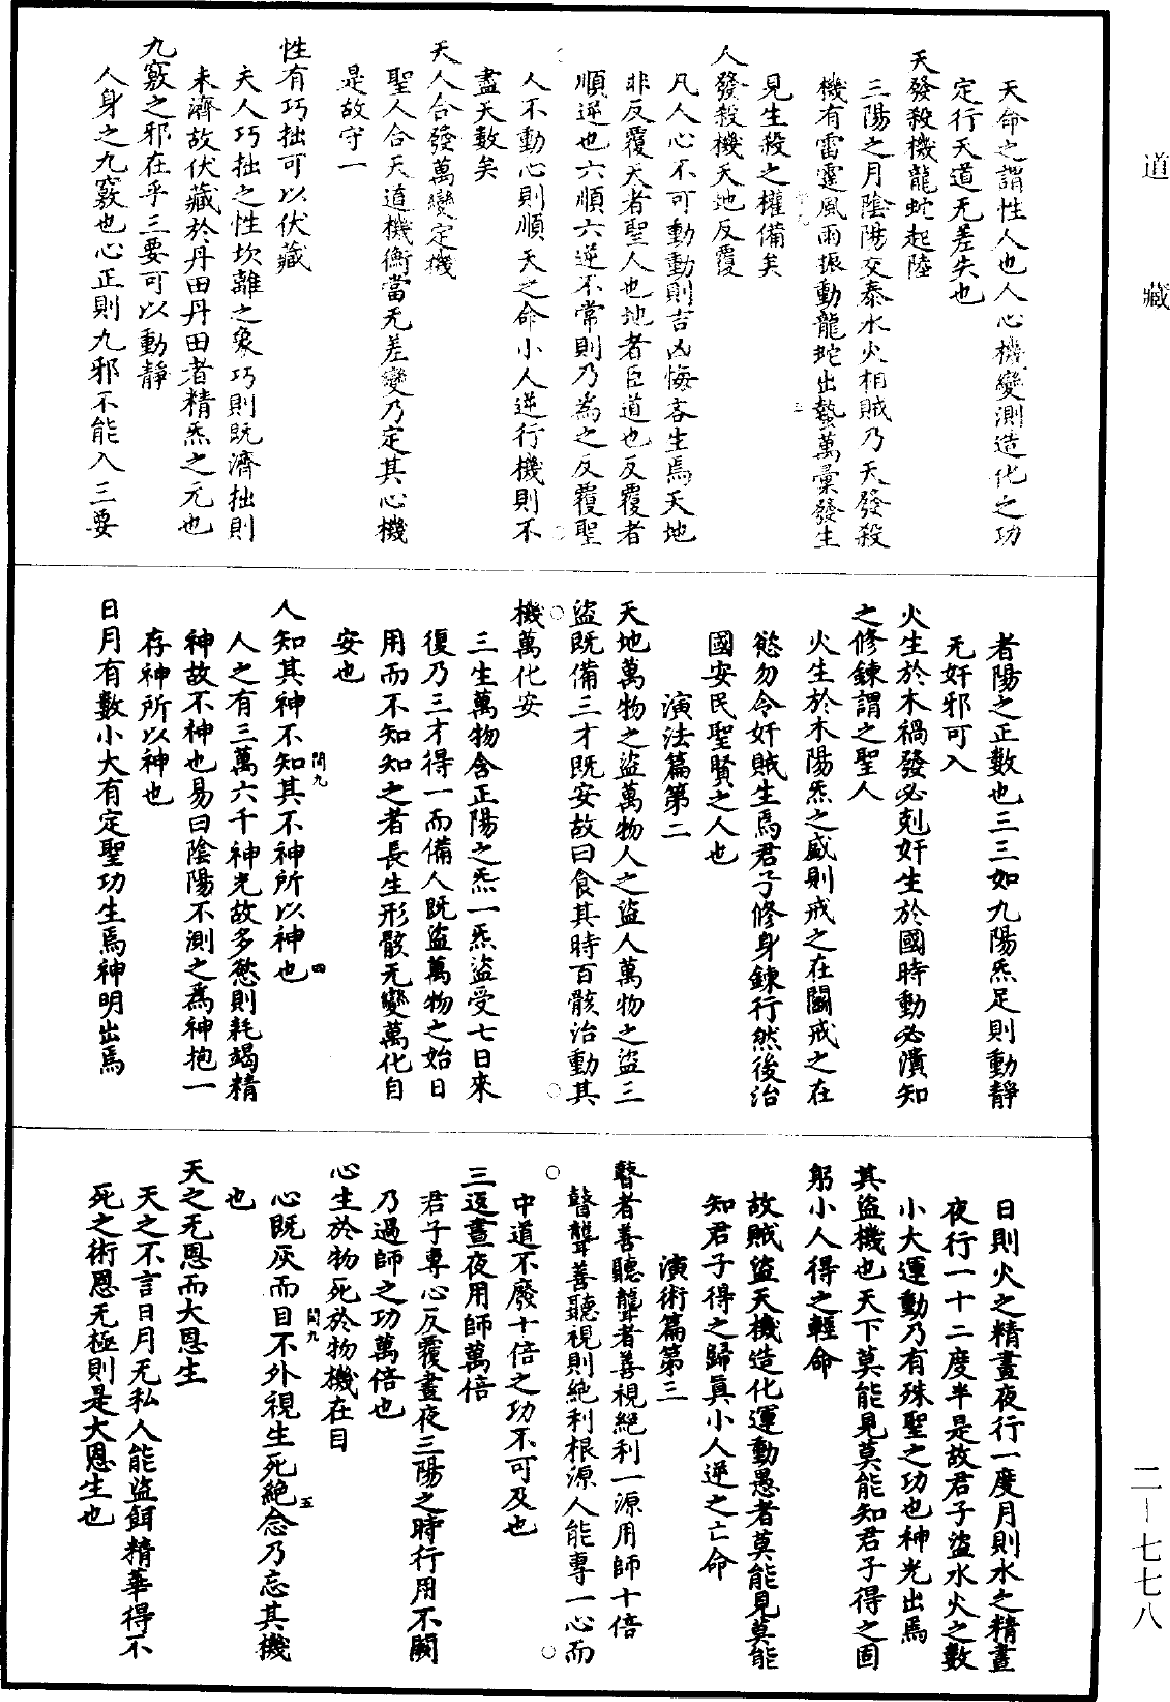 道藏
天命之謂性人也人心機變測造化之功
定行天道无差失也
天發殺機龍蛇起陸
三陽之月陰陽交泰水火相賊乃天發殺
機有雷霆風雨振動龍蛇出蟄萬彙發生
見生殺之權備矣
人發殺機天地反覆
凡人心不可動動則吉凶悔吝生焉天地
非反覆天者聖人也地者臣道也反覆者
順逆也六順六逆不常則乃為之反覆聖
人不動心則順天之命小人逆行機則不
盡天數矣
天人合發萬變定機
聖人合天道機衡當无差變乃定其心機
是故守一
性有巧拙可以伏藏
夫人巧拙之性坎離之象巧則既濟拙則
未濟故伏藏於丹田丹田者精炁之元也
九竅之邪在乎三要可以動靜
人身之九竅也心正則九邪不能入三要
者陽之正數也三三如九陽炁足則動靜
无奸邪可入
火生於木禍發必剋奸生於國時動必潰知
之修鍊謂之聖人
火生於木陽炁之盛則戒之在鬭戒之在
慾勿令奸賊生焉君子修身鍊行然後治
國安民聖賢之人也
演法篇第二
天地萬物之盜萬物人之盜人萬物之盜三
盜既備三才既安故曰食其時百骸治動其
機萬化安
三生萬物含正陽之炁一炁盜受七日來
復乃三才得一而備人既盜萬物之始日
用而不知知之者長生形骸无變萬化自
安也
閏九
四
人知其神不知其不神所以神也
人之有三萬六千神光故多慾則耗竭精
神故不神也易曰陰陽不測之為神抱一
存神所以神也
日月有數小大有定聖功生焉神明出焉
日則火之精晝夜行一度月則水之精晝
夜行一十二度半是故君子盜水火之數
小大運動乃有殊聖之功也神光出焉
其盜機也天下莫能見莫能知君子得之固
躬小人得之輕命
故賊盜天機造化運動愚者莫能見莫能
知君子得之歸真小人逆之亡命
演術篇第三
瞽者善聽聾者善視絕利一源用師十倍
瞽聾善聽視則絕利根源人能專一心而
中道不廢十倍之功不可及也
三返晝夜用師萬倍
君子專心反覆晝夜三陽之時行用不闕
乃過師之功萬倍也
心生於物死於物機在目
閏九
五
心既灰而目不外視生死絕念乃忘其機
也
天之无恩而大恩生
天之不言日月无私人能盜餌精華得不
死之術恩无極則是大恩生也
二—七七八